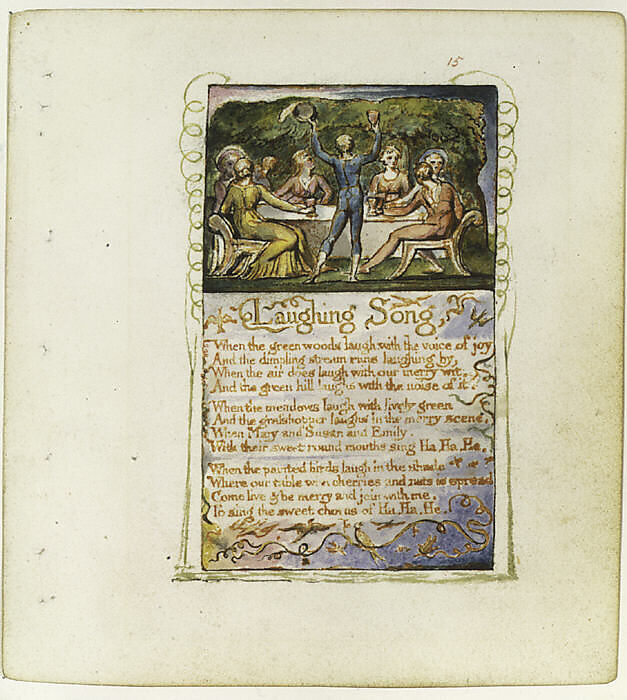 15
Laughing Song,
When the green woods laugh with the voice of joy
And the dimpling stream runs laughing by,
When the air does laugh with our merry wit,
And the green hill laughs with the noise of it.
When the meadows laugh with lively green
And the grasshopper laughs in the merry scene,
When Mary and Susan and Emily.
With their sweet round mouths sing Ha, Ha, He.
When the painted birds laugh in the shade
Where our table with cherries and nuts is spread
Come live & be merry and join with me,
To sing the sweet chorus of Ha, Ha, He.